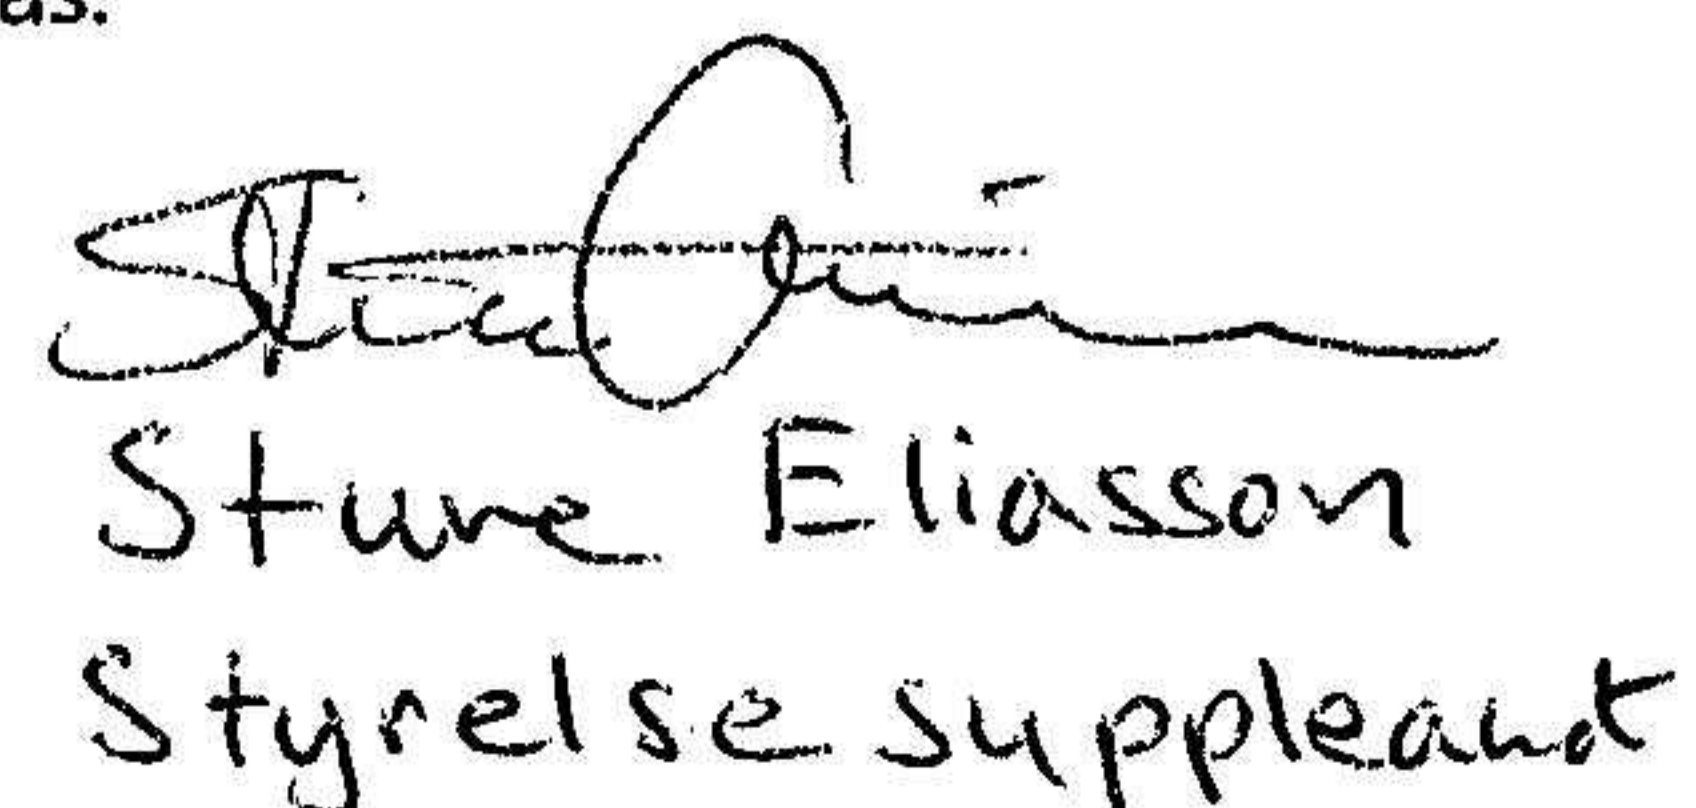 as.
Sture Eliasson
Styrelse suppleant